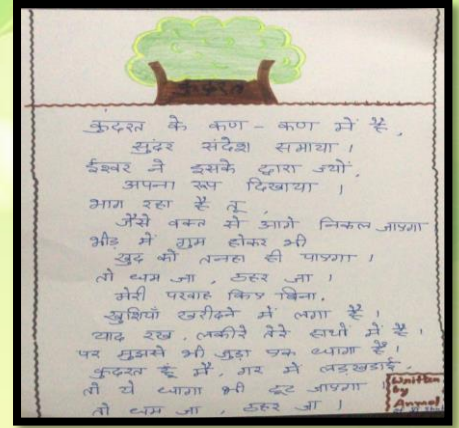 कुदरत
कुदरत के कण - कण में है,
सुंदर संदेश समाया।
ईश्वर ने इसके द्वारा ज्यों,
अपना रूप दिखाया।
भाग रहा है तू,
जैसे वक्त से आगे निकल जाएगा
भीड़ में गुम होकर भी
खुद को तनहा ही पाएगा।
तो थम जा, ठहर जा।
मेरी परवाह किए बिना,
खुशियाँ खरीदने में लगा है।
याद रख, लकीरे तेरे हाथों में है।
पर मुझसे भी जुड़ा एक धागा है।
कुदरत हूँ मैं, गर मैं लड़खड़ाई,
तो ये धागा भी टूट जाएगा।
तो थम जा, ठहर जा।
Written
by
Anmol